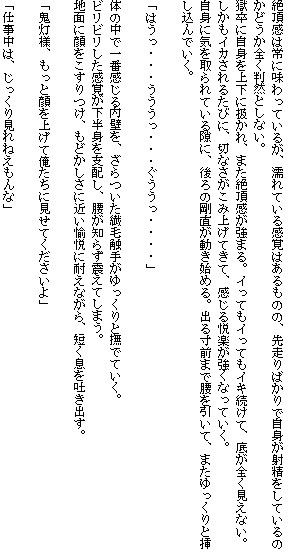 絶頂感は常に味わっているが、濡れている感覚はあるものの、先走りばかりで自身が射精をしているの
かどうか全く判然としない。
獄卒に自身を上下に扱かれ、また絶頂感が強まる。イってもイってもイキ続けて、底が全く見えない。
しかもイカされるたびに、切なさがこみ上げてきて、感じる悦楽が強くなっていく。
自身に気を取られている隙に、後ろの剛直が動き始める。出る寸前まで腰を引いて、またゆっくりと挿
し込んでいく。
「はうっ・・・うううっ・・・ぐううっ・・・・」
体の中で一番感じる内壁を、ざらついた繊毛触手がゆっくりと撫でていく。
ビリビリした感覚が下半身を支配し、腰が知らず震えてしまう。
地面に顔をこすりつけ、もどかしさに近い愉悦に耐えながら、短く息を吐き出す。
「鬼灯様、もっと顔を上げて俺たちに見せてくださいよ」
「仕事中は、じっくり見れねえもんな」